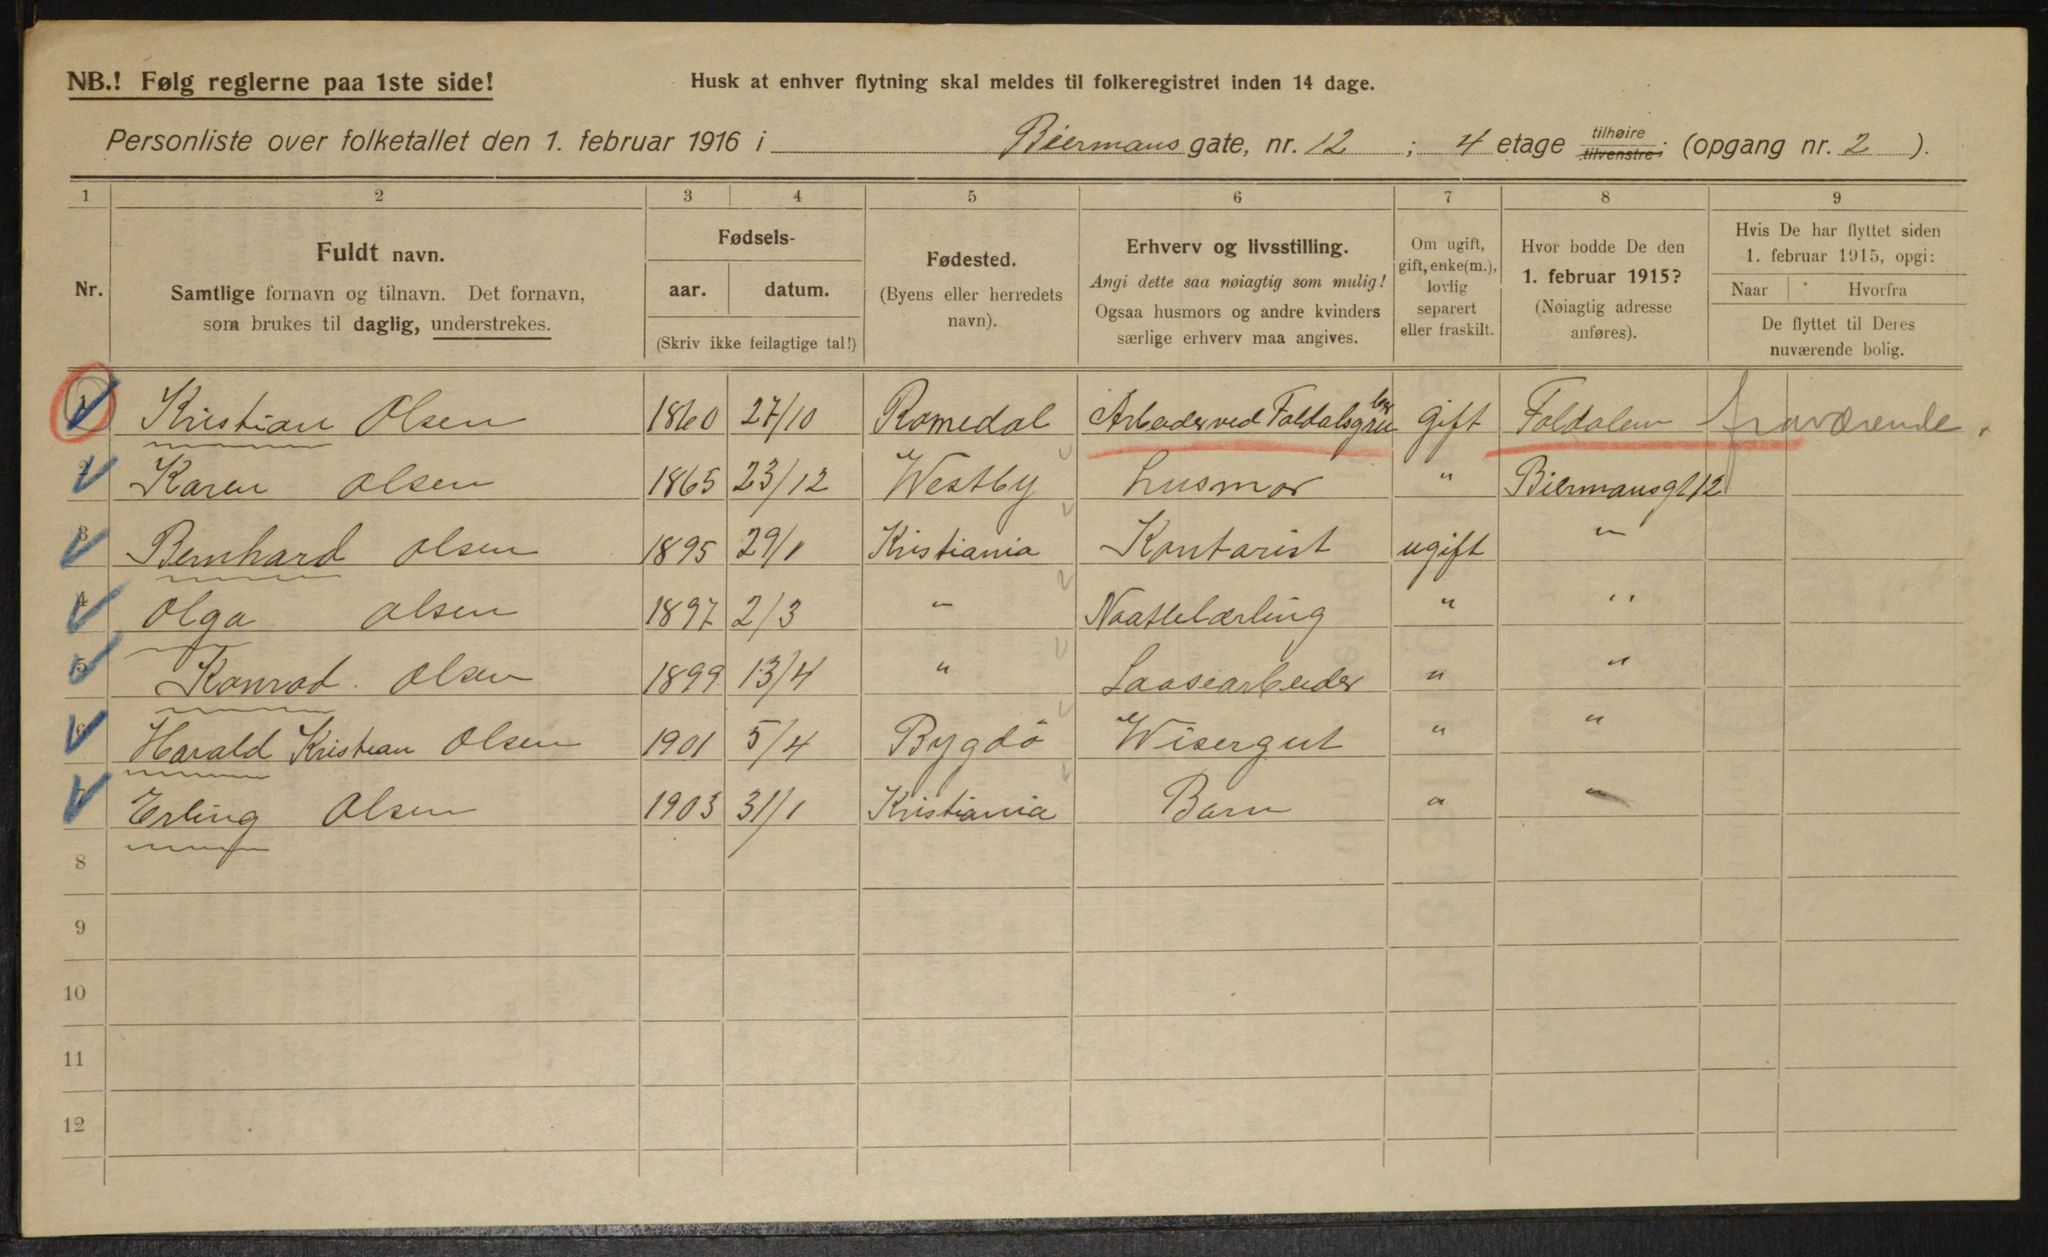 NB.! Følg reglerne paa 1ste side! Husk at enhver flytning skal meldes til folkeregistret inden 14 dage.
Personliste over folketallet den 1. februar 1916 i Biermans gate, nr. 12 ; 4 etage tilhøire tilvenstre (opgang nr. 2 ).
1 2 3 4 5 6 7 8 9
Nr.
Fuldt navn.
Samtlige fornavn og tilnavn. Det fornavn,
som brukes til daglig, understrekes.
Fødsels-
aar. datum.
(Skriv ikke feilagtige tal!)
Fødested.
(Byens eller herredets
navn).
Erhverv og livsstilling.
Angi dette saa nøiagtig som mulig!
Ogsaa husmors og andre kvinders
særlige erhverv maa angives.
Om ugift,
gift, enke(m.),
lovlig
separert
eller fraskilt.
Hvor bodde De den
1. februar 1915?
(Nøiagtig adresse
anføres).
Hvis De har flyttet siden
1. februar 1915, opgi:
Naar Hvorfra
De flyttet til Deres
nuværende bolig.
1 Kristian Olsen 1860 27/10 Romedal Arbeider ved Foldals gift Foldalen fraværende.
2 Karen Olsen 1865 23/12 Westby Husmor " Biermansgt 12
3 Bernhard Olsen 1895 29/1 Kristiania Kontorist ugift "
4 Olga Olsen 1897 2/3 " "  "
5 Konrad Olsen 1899 13/4 " Laasearbeider " "
6 Harald Kristian Olsen 1901 5/4 Bygdö Wisergut " "
7 Erling Olsen 1903 31/1 Kristiania Barn " "
8
9
10
11
12